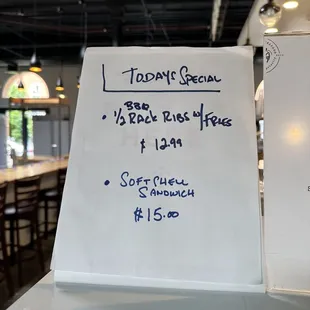 TODAYS SPECIAL
• ½ BBQ RACK RIBS W/ FRIES
$ 12.99
• SOFTSHELL
SANDWICH
$15.00